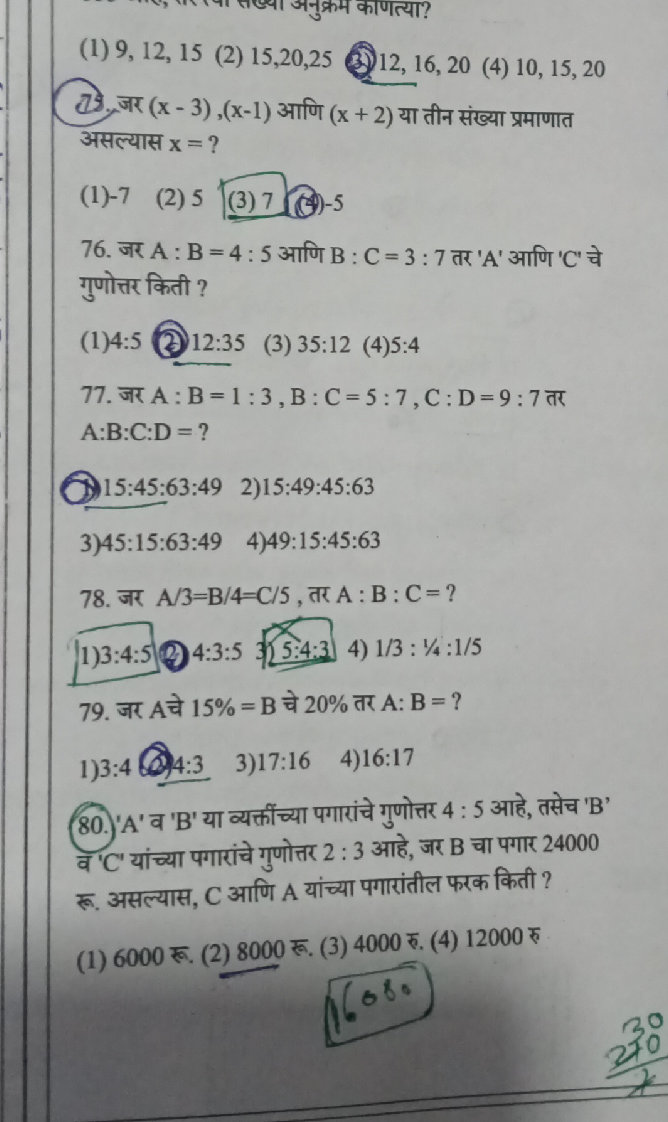 अनुक्रम कोणत्या?
(1) 9, 12, 15 (2) 15,20,25 (3) 12, 16, 20 (4) 10, 15, 20
75. जर (x - 3) ,(x-1) आणि (x + 2) या तीन संख्या प्रमाणात
असल्यास x = ?
(1)-7 (2) 5 (3) 7 (4)-5
76. जर A : B = 4 : 5 आणि B : C = 3 : 7 तर 'A' आणि 'C' चे
गुणोत्तर किती ?
(1)4:5 (2) 12:35 (3) 35:12 (4)5:4
77. जर A : B = 1 : 3 , B : C = 5 : 7 , C : D = 9 : 7 तर
A:B:C:D = ?
1)15:45:63:49 2)15:49:45:63
3)45:15:63:49 4)49:15:45:63
78. जर A/3=B/4=C/5 , तर A : B : C = ?
1)3:4:5 2) 4:3:5 3) 5:4:3 4) 1/3 : ¼ :1/5
79. जर Aचे 15% = B चे 20% तर A: B = ?
1)3:4 2)4:3 3)17:16 4)16:17
80. 'A' व 'B' या व्यक्तींच्या पगारांचे गुणोत्तर 4 : 5 आहे, तसेच 'B'
व 'C' यांच्या पगारांचे गुणोत्तर 2 : 3 आहे, जर B चा पगार 24000
रू. असल्यास, C आणि A यांच्या पगारांतील फरक किती ?
(1) 6000 रू. (2) 8000 रू. (3) 4000 रु. (4) 12000 रु
16080
30
270